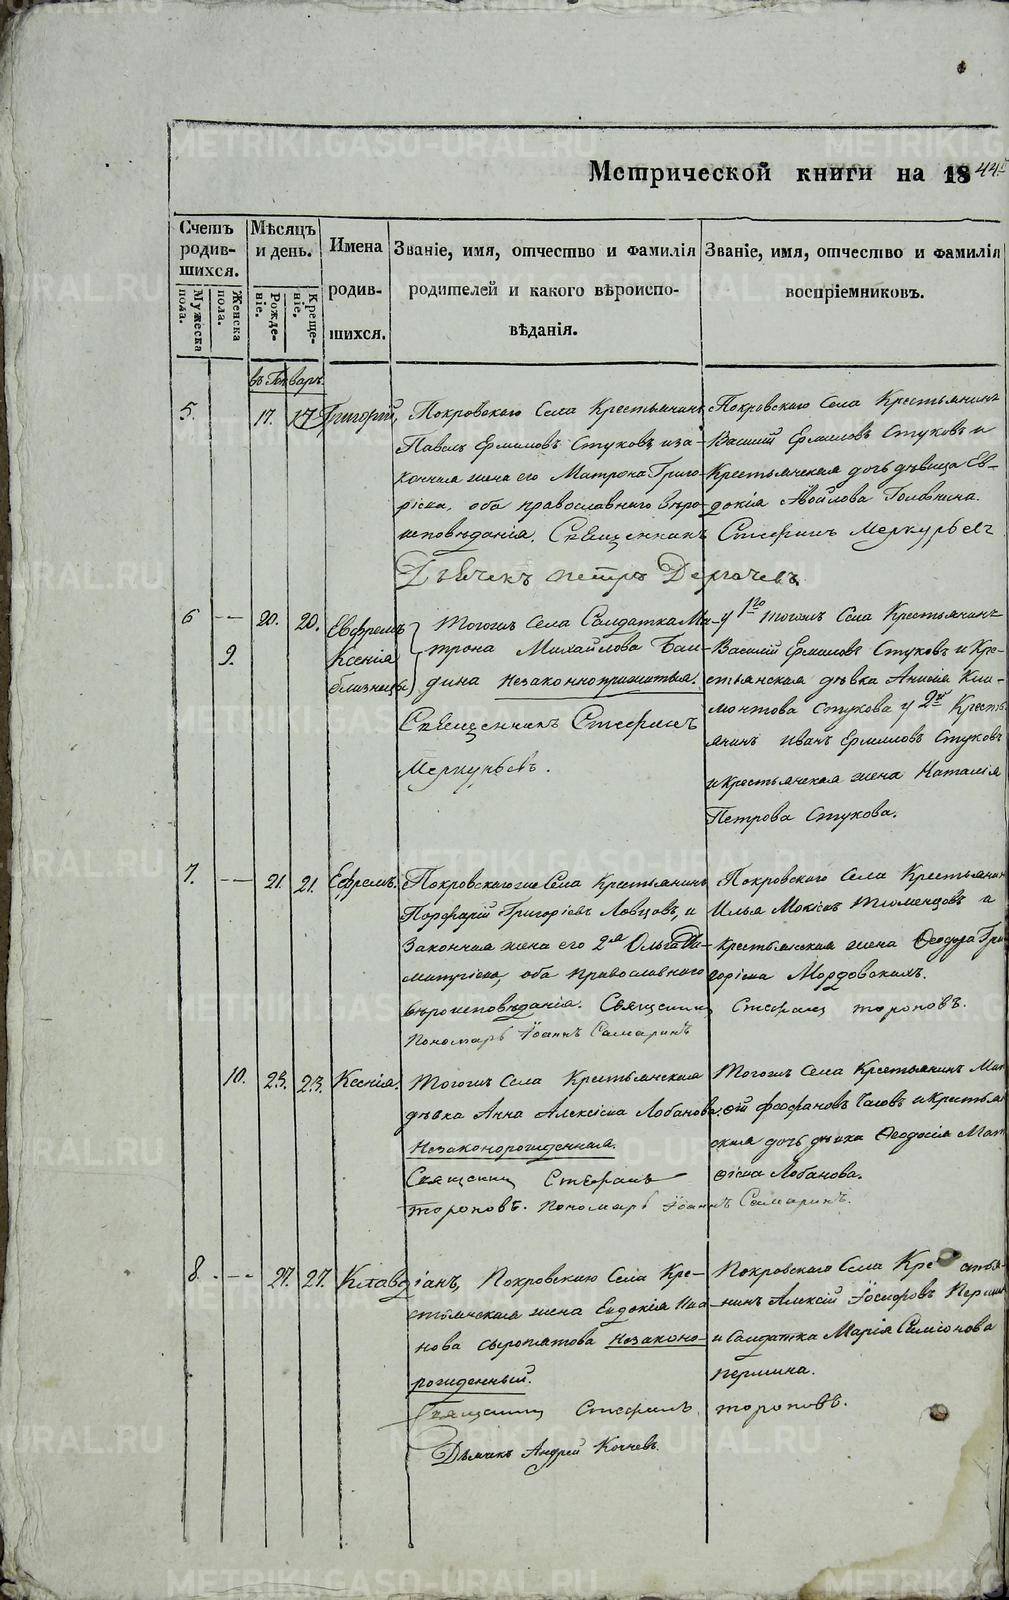 Метрической книги на 1844 г.
Счетъ родив- шихся.
Мѣсяцъ и день.
Имена родив- шихся.
Званіе, имя, отчество и фамилія родителей и какого вѣроиспо- вѣданія.
Званіе, имя, отчество и фамилія воспріемниковъ.
Мужеска пола.
Женска пола.
Рожде- ніе.
Креще- ніе.
въ Январѣ
5. 17. 17 Григорій,
Покровскаго Села Крестьянинъ
Павелъ Ермиловъ Стуковъ и за-
конная жена его Матрона Григо-
ріева, оба православнаго вѣро-
исповѣданія. Священникъ Стефанъ Меркурьевъ
Дьячекъ Петръ Дергачевъ
Покровскаго Села Крестьянинъ
Василій Ермиловъ Стуковъ и
Крестьянская дочь дѣвица Ев-
докія Головина.
6 -- 20. 20. Евфремъ
9. Ксенія
близнецы)
Тогожъ Села Солдатка Ма-
трона Михайлова Бан-
дина незаконноприжитыя.
Священникъ Стефанъ
Меркурьевъ.
у 1го тогожъ Села Крестьянинъ
Василій Ермиловъ Стуковъ и Кре-
стьянская дѣвка Анисія Кли-
монтова Стукова у 2й Кресть-
янинъ Иванъ Ермиловъ Стуковъ
и крестьянская жена Наталія
Петрова Стукова.
7. -- 21. 21. Ефремъ.
Покровскагоже Села Крестьянинъ
Порфирій Григорьевъ Ловцовъ, и
Законная жена его 2я Ольга Ди-
митріева, оба православнаго
вѣроисповѣданія. Священникъ Стефанъ Тороповъ.
Пономарь Іоаннъ Самаринъ
Покровскаго Села Крестьянинъ
Илья Мокіевъ Тюменцовъ и
крестьянская жена Ѳеодора Гри-
горіева Мордовскихъ.
10. 23. 23. Ксенія.
Тогожъ Села Крестьянская
дѣвка Анна Алексіева Лобанова
Незаконорожденная.
Священникъ Стефанъ
Тороповъ. Пономарь Іоаннъ Самаринъ.
Тогожъ Села Крестьянинъ Мат-
ѳій Феофановъ Часовъ и крестьян-
ская дочь дѣвка Ѳеодосія Мат-
ѳіева Лобанова.
8. -- 27. 27. Клавдіанъ,
Покровскаго Села Кре-
стьянская жена Евдокія Ива-
нова Сыропятова незаконо-
рожденный.
Священникъ Стефанъ Тороповъ.
Дьячекъ Андрей Кочневъ.
Покровскаго Села Крестья-
нинъ Алексій Іосифовъ Першинъ
и Солдатка Марія Симіонова
Першина.
METRIKI.GASO-URAL.RU